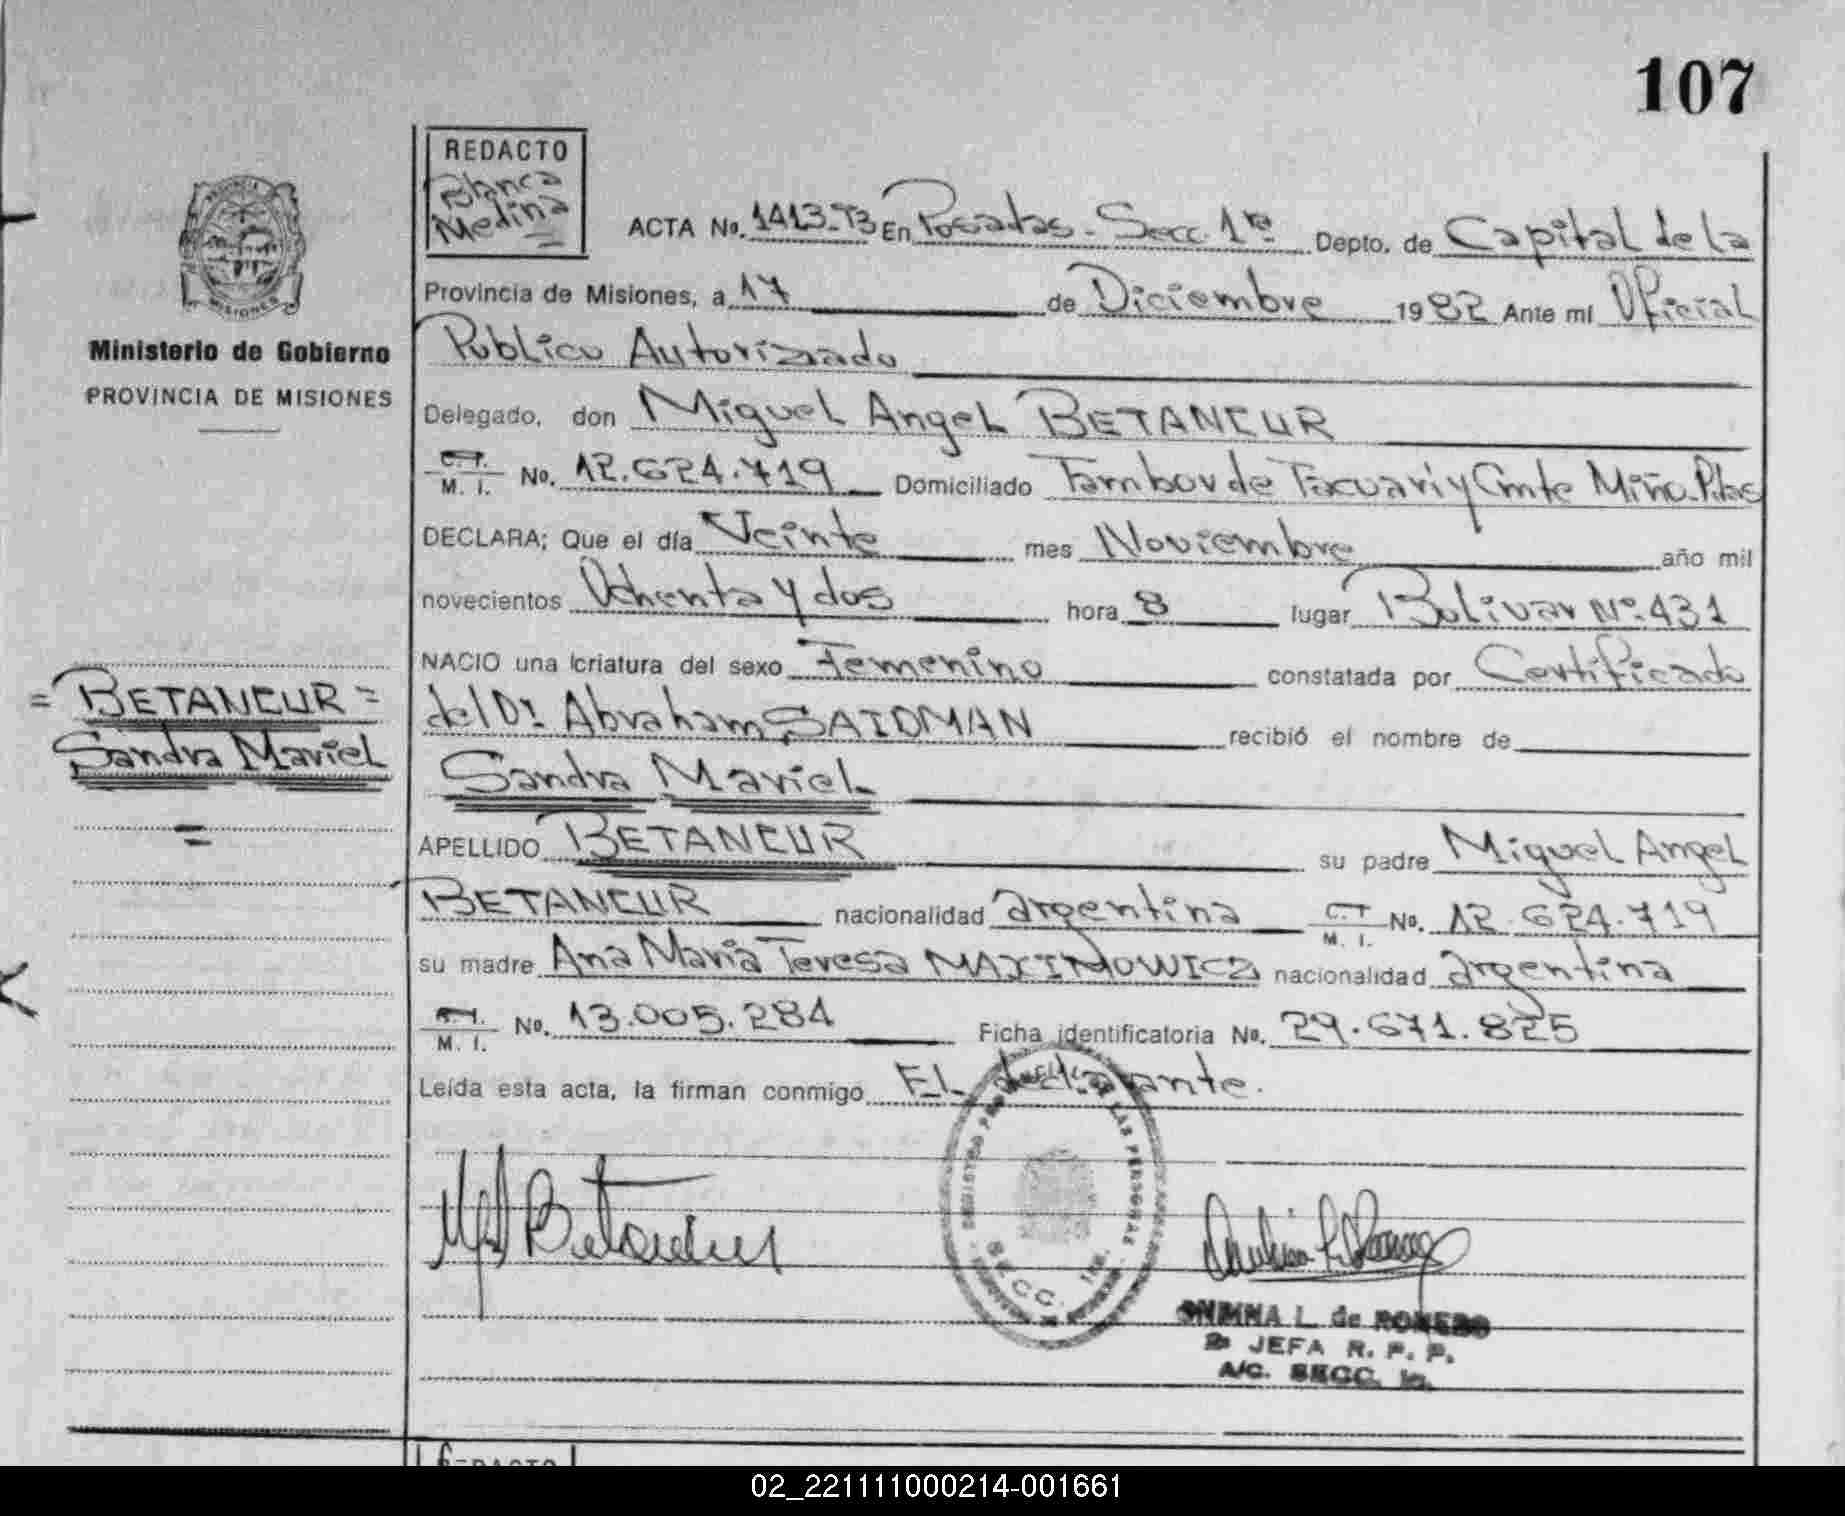 107
REDACTO
Blanca
Medina
ACTA No. 1413-T3 En Posadas - Secc. 1ra Depto. de Capital de la
Provincia de Misiones, a 17 de Diciembre 1982 Ante mi Oficial
Publico Autorizado
Delegado, don Miguel Angel BETANCUR
C. I.
M. I. No. 12.624.719 Domiciliado Tambor de Tacuari y Cmte Miño. Pdas
DECLARA; Que el día Veinte mes Noviembre año mil
novecientos Ochenta y dos hora 8 lugar Bolivar Nº 431
NACIO una criatura del sexo Femenino constatada por Certificado
del Dr. Abraham SAIDMAN recibió el nombre de
Sandra Mariel
APELLIDO BETANCUR su padre Miguel Angel
BETANCUR nacionalidad argentina C. I.
M. I. No. 12.624.719
su madre Ana Maria Teresa MAXIMOWICZ nacionalidad argentina
C. I.
M. I. No. 13.005.284 Ficha identificatoria No. 29.671.825
Leída esta acta, la firman conmigo El declarante.
Ministerio de Gobierno
PROVINCIA DE MISIONES
= BETANCUR =
Sandra Mariel
=
MISIONES
SECC. 1ra.
L. de ROMERO
JEFA R. P. P.
A/C. SECC. 1a.
REDACTO
02_221111000214-001661